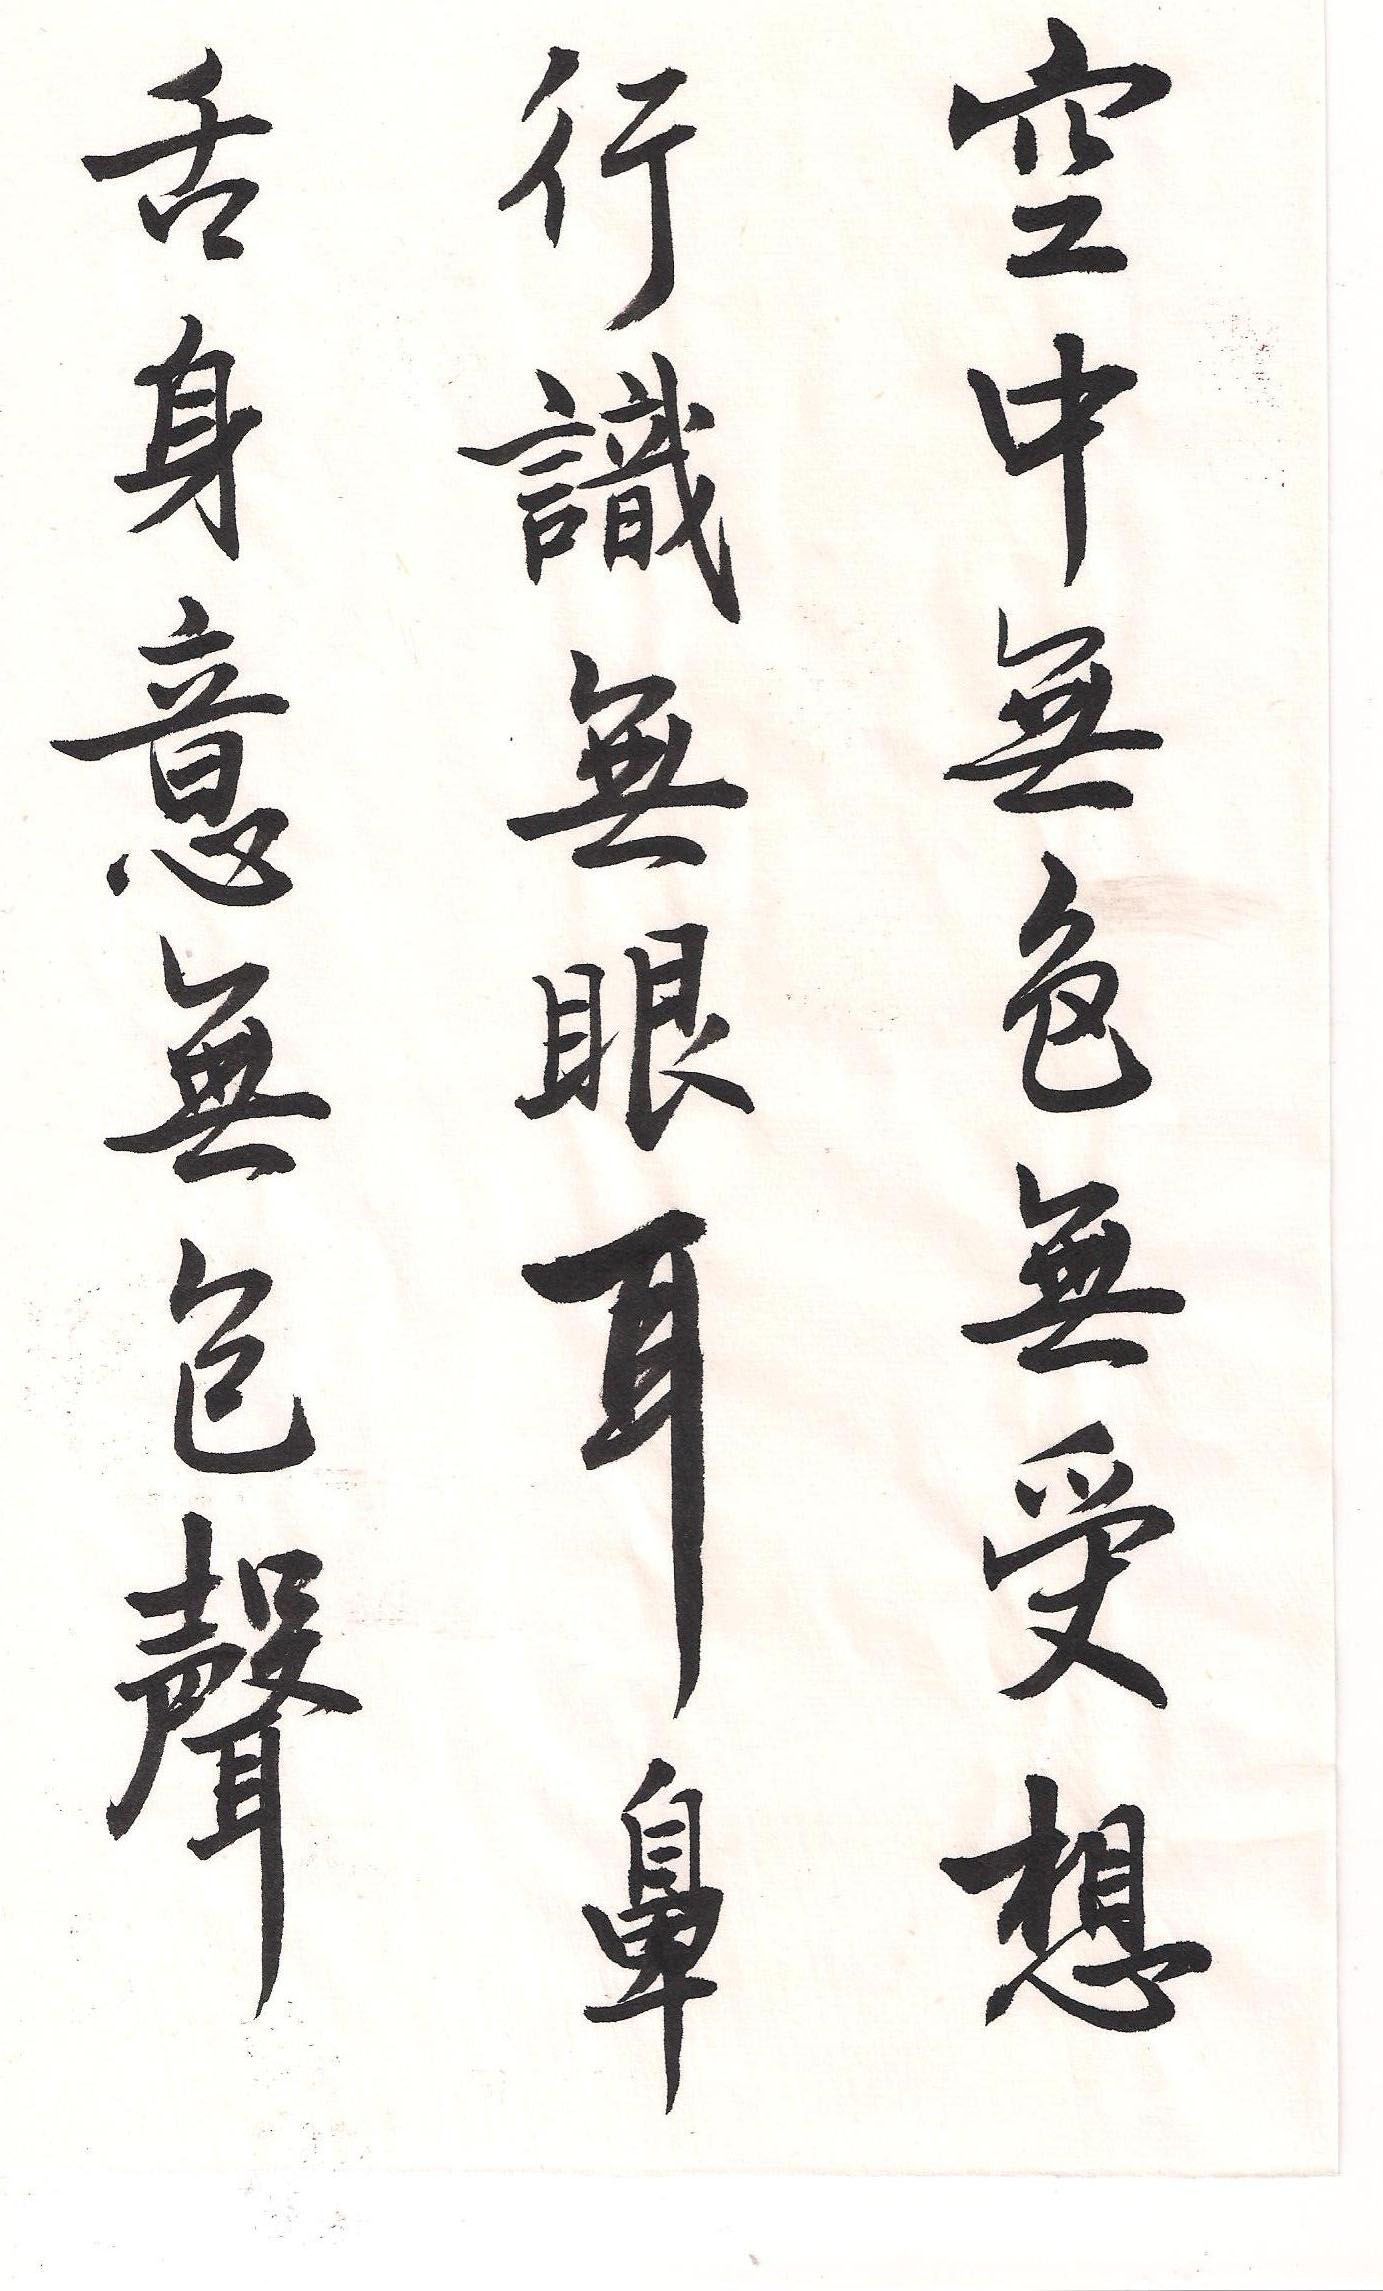 空中無色無受想
行識無眼耳鼻
舌身意無色聲